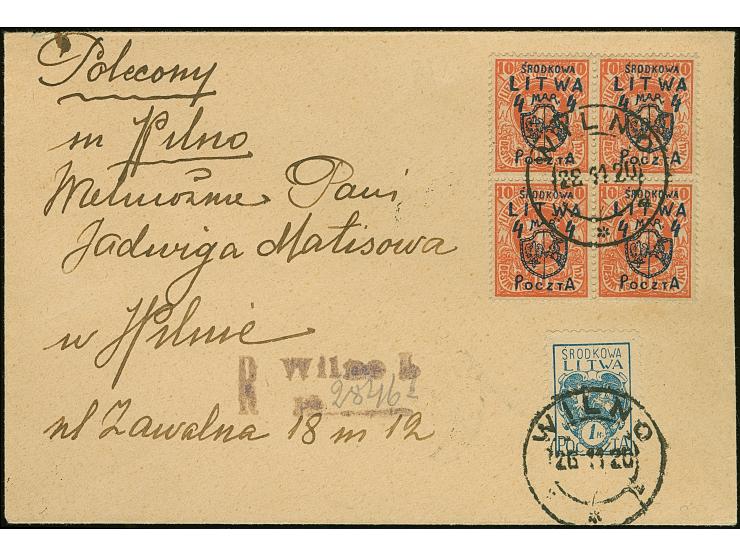 Polecony
m Wilno
Wielmożna Pani
Jadwiga Matisowa
w Wilnie
ul Zawalna 18 m 12
R Wilno 1
№ 2846
10 ŚRODKOWA 10
LITWA
4 MAR. 4
POCZTA
10 ŚRODKOWA 10
LITWA
4 MAR. 4
POCZTA
10 ŚRODKOWA 10
LITWA
4 MAR. 4
POCZTA
10 ŚRODKOWA 10
LITWA
4 MAR. 4
POCZTA
WILNO
26 11 20
ŚRODKOWA
LITWA
1 M.
POCZTA
WILNO
26 11 20